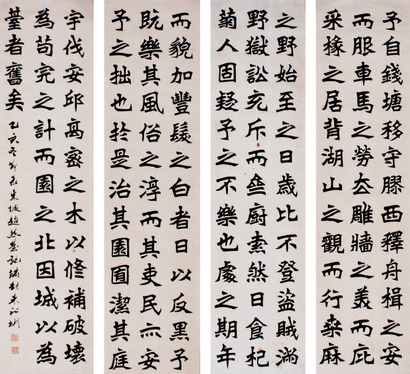 予自錢塘移守膠西釋舟楫之安
而服車馬之勞去雕牆之美而庇
采椽之居背湖山之觀而行桑麻
之野始至之日歲比不登盜賊滿
野獄訟充斥而齋廚索然日食杞
菊人固疑予之不樂也處之期年
而貌加豐髮之白者日以反黑予
既樂其風俗之淳而其吏民亦安
予之拙也於是治其園圃潔其庭
宇伐安邱高密之木以修補破壞
為苟完之計而園之北因城以為
臺者舊矣 乙亥冬節錄東坡超然臺記